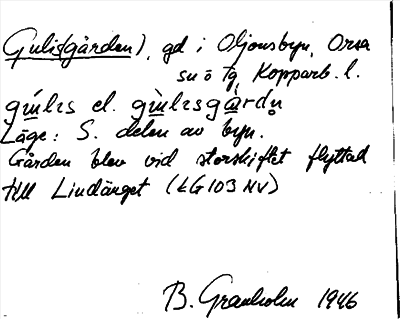 Gulis(gården), gd i Oljonsbyn, Orsa
sn o tg, Kopparb. l.
gɯ́lɩs el. gɯ̀lɩsgàrdn̥
Läge: S. delen av byn.
Gården blev vid storskiftet flyttad
till Lindänget (LG103 NV)
B. Granholm 1946